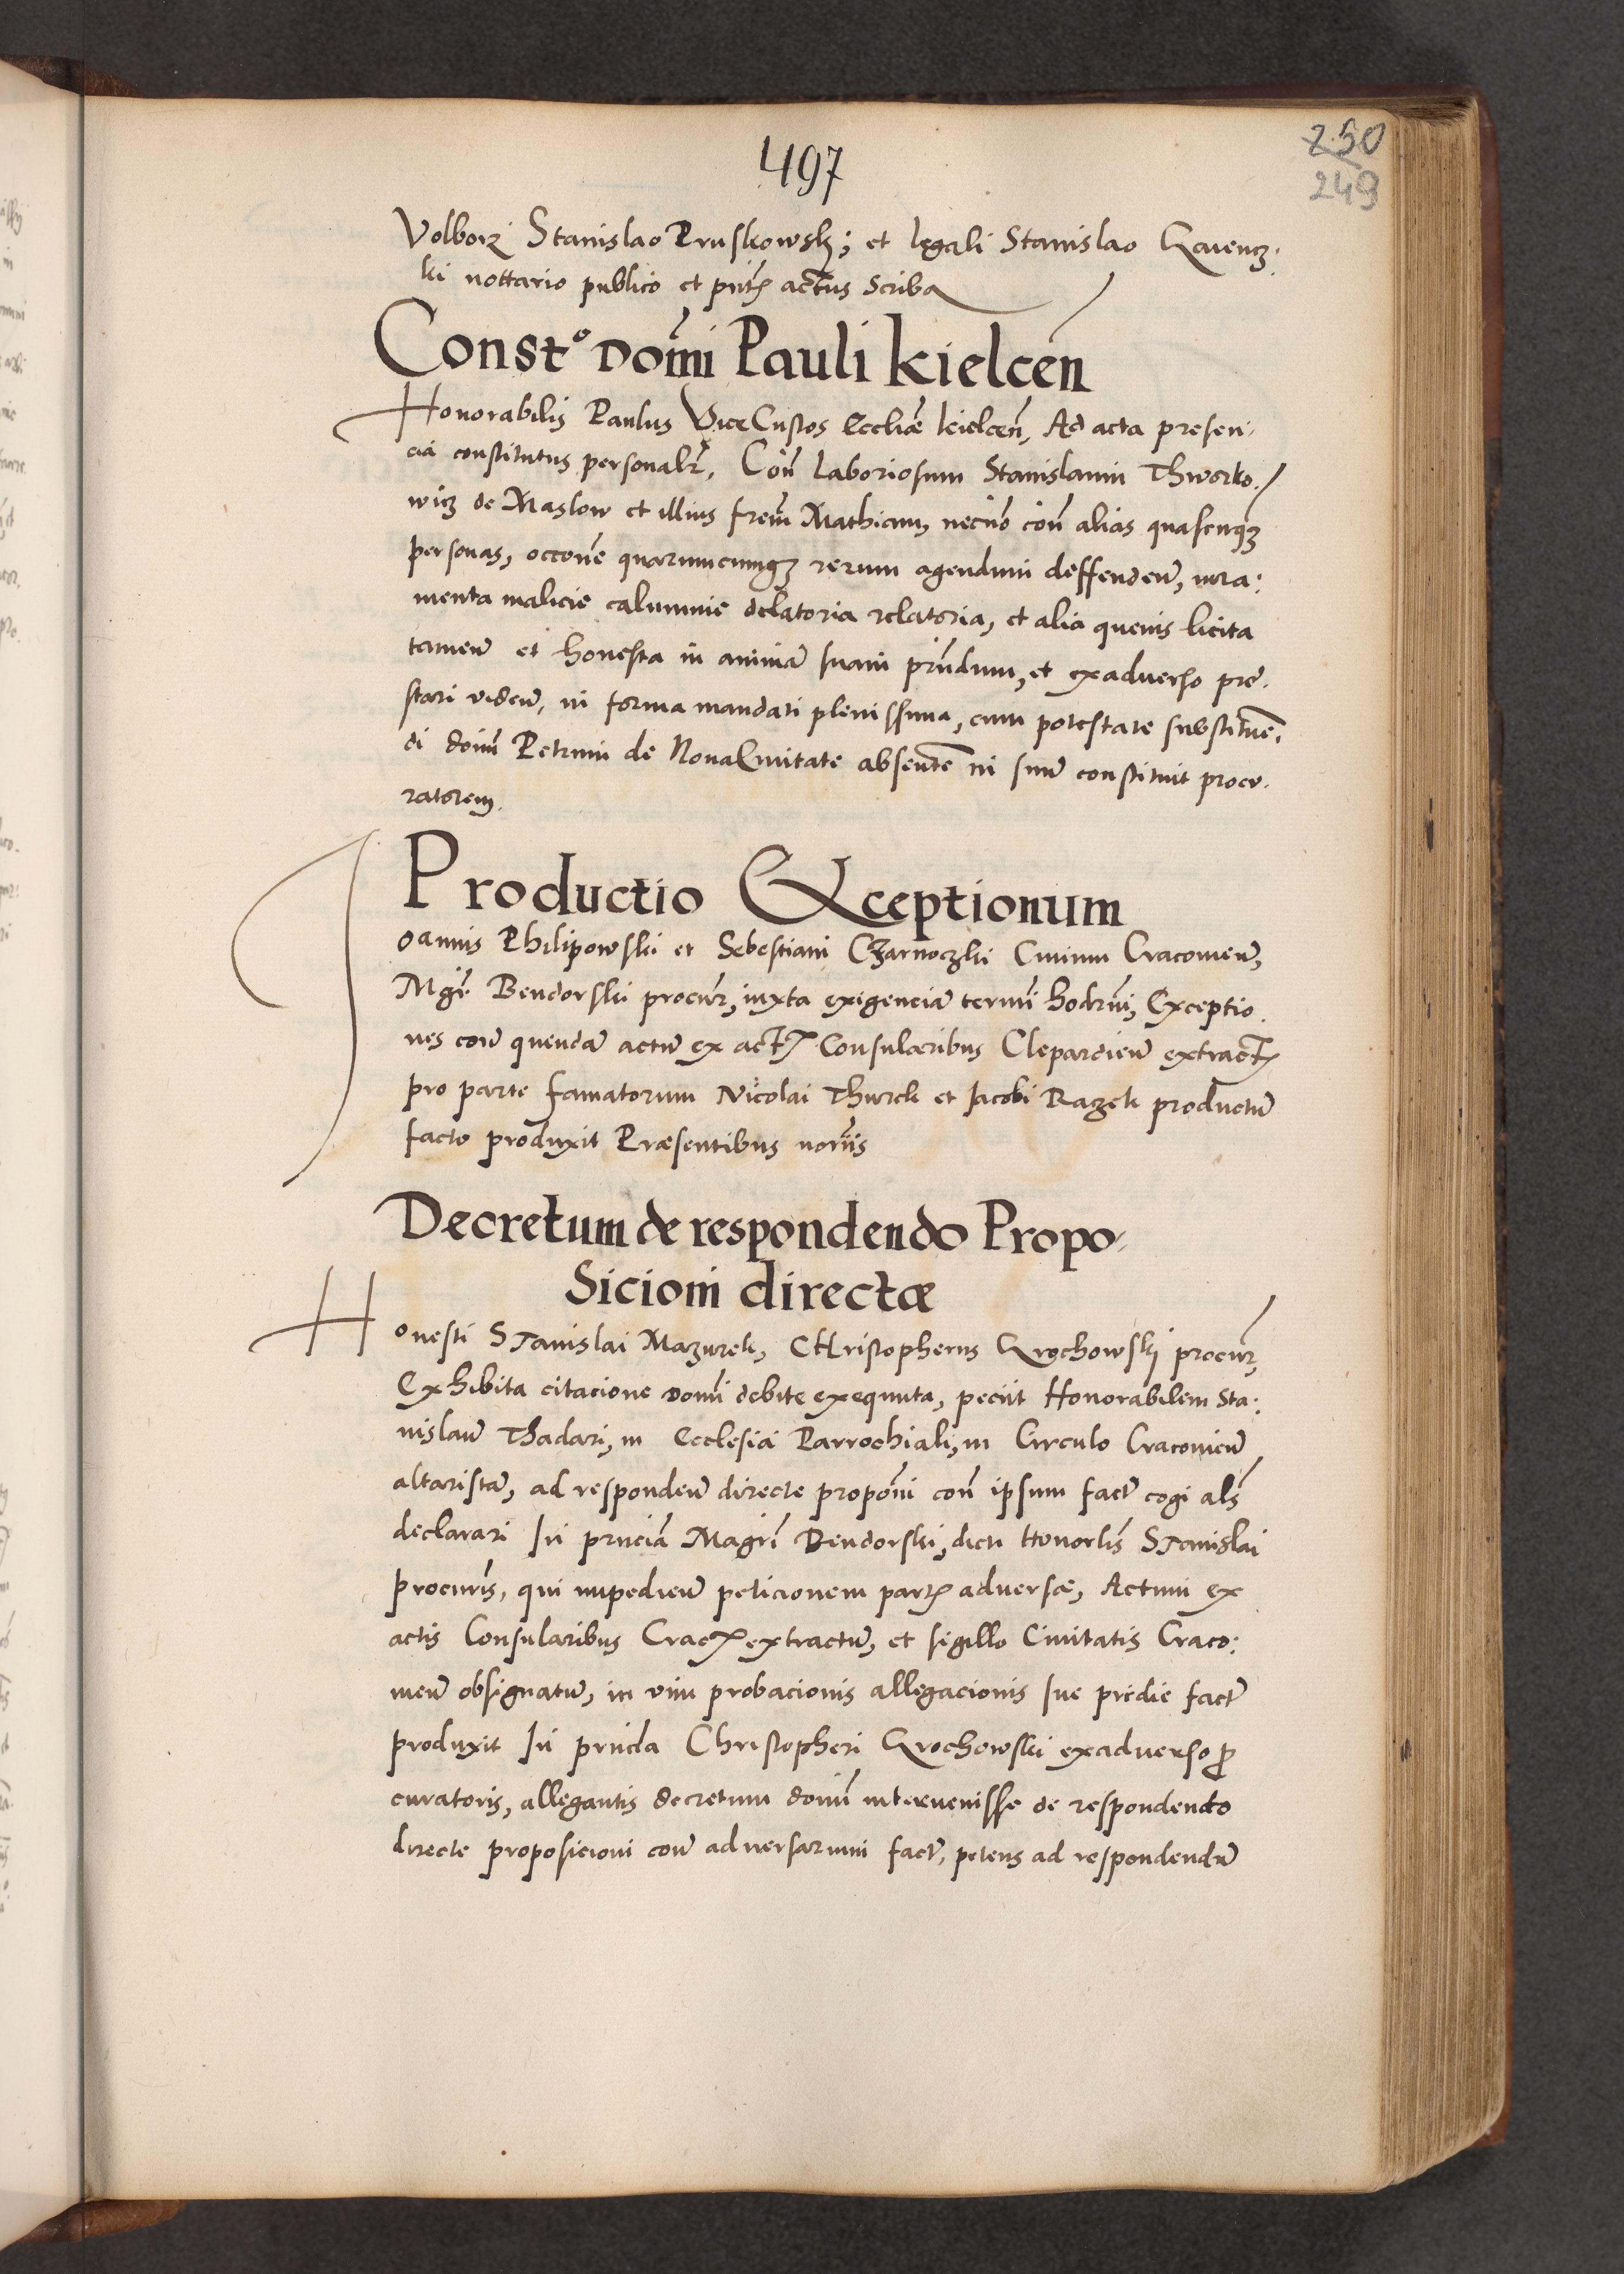 497
250
249
Volborz Stanislao Pruskowskj; et legali Stanislao Gavencz.
ki nottario publico et pntẽ actus Scriba
Const.º Domĩ Pauli Kielcen̄
Honorabilis Paulus ViceCustos Eccliæ kielcen̄, Ad acta presen.
cia constitutus personalr̃, Con̄ Laboriosum Stanislaum Thworko./
wicz de Maslow et illius frem̄ Mathiam, necno̅ con̄ alias quascunqȝ
personas, occone̅ quarumcumqȝ rerum agendum deffenden̄, iura:
menta malicie calumnie delatoria relatoria, et alia quevis licita
tamen̄ et honesta in anima̅ suam prn̄dum, et exadverso pre.
stari viden̄, in forma mandati plenissima, cum potestate substitue̅.
di dom̄ Petrum de NovaCivitate absente̅ in suu̅ constituit procu.
ratorem.
Productio Exceptionum
Joannis Philipowski et Sebestiani CZarnoczki Civium Cracovien̄,
Mgr̄ Bendorski procur̄, iuxta exigencia̅ termi̅ hodrn̄i, Exceptio.
nes con̄ quenda̅ actu̅ ex actȷ Consularibus Clepardien̄ extractȷ
pro parte famatorum Nicolai Thurek et Jacobi Razek productu̅
facto produxit Præsentibus norȷis
Decretum de respondendo Propo-
Sicioni directæ
Honesti STanislai Mazurek, CHristopherus Grochowskj procur̄,
Exhibita citacione Domi̅ debite exequuta, peciit Honorabilem Sta:
nislau̅ Thadari, in Ecclesia Parrochiali, in Circulo Cracovien̄
altarista̅, ad responden̄ directe propon̄i con̄ ipsum fact̄ cogi als̄
declarari In prn̄cia̅ Magr̄i Bendorski, dicti Honorlis̄ STanislai
procuris̄, qui impedien̄ peticionem partȷ adversæ, Actum ex
actis Consularibus Cracȷ extractu̅, et sigillo Civitatis Craco:
vien̄ obsignatu̅, in vim probacionis allegacionis sue pridie fact̄
produxit In prn̄cia Christopheri Grochowski exadverso p̱
curatoris, allegantis decretum dom̄ intervenisse de respondendo
directe proposicioni con̄ adversarium fact̄, petens ad respondendu̅